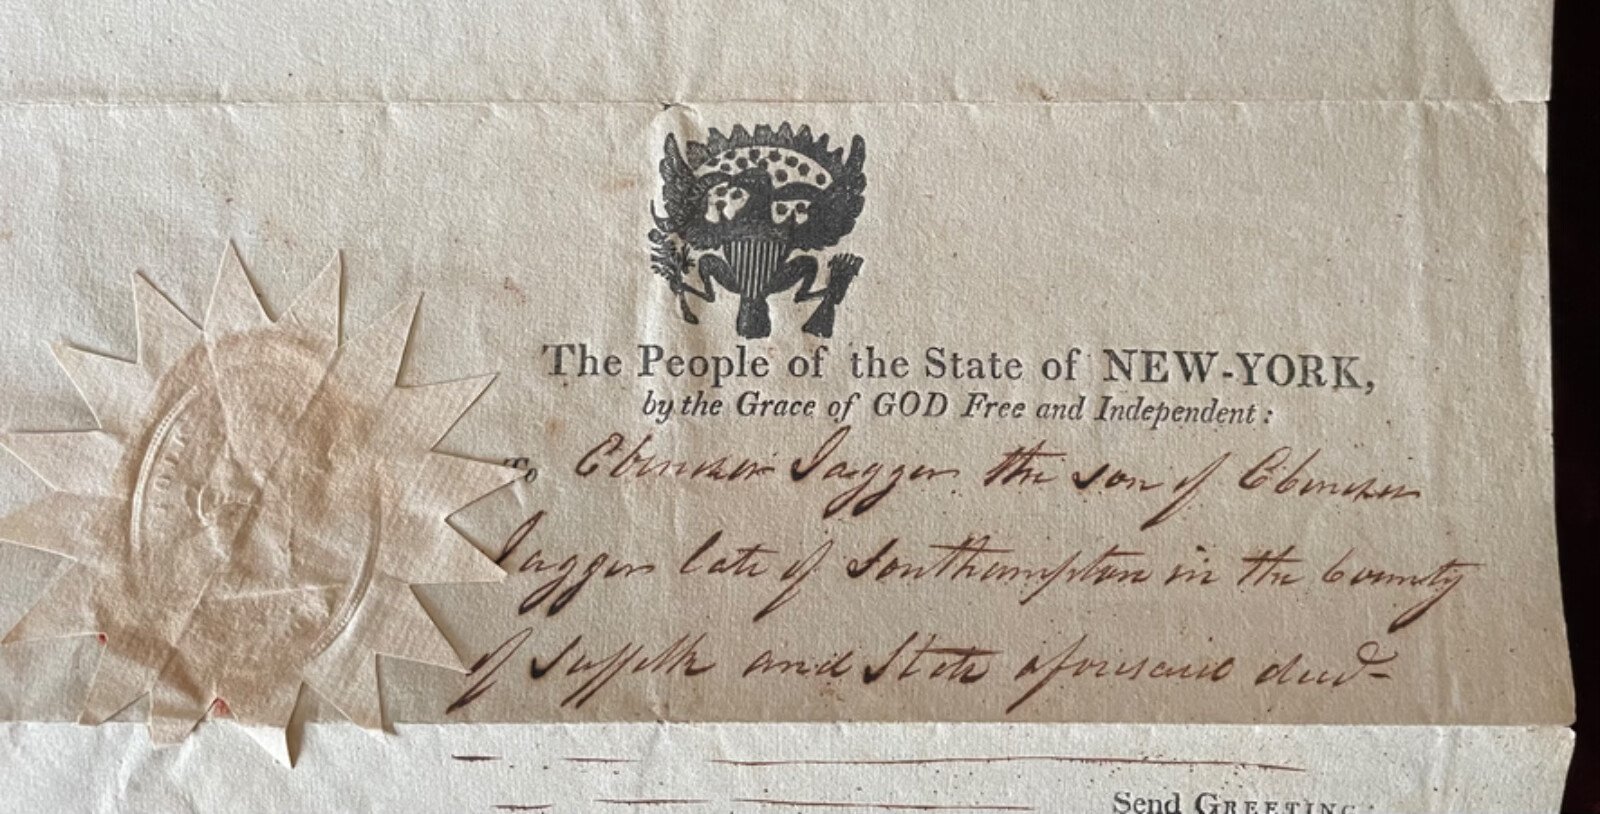 The People of the State of NEW-YORK,
by the Grace of GOD Free and Independent:
To Ebenezer Jagger the son of Ebenezer
Jagger late of Southampton in the County
of Suffolk and State aforesaid decd
Send GREETING: